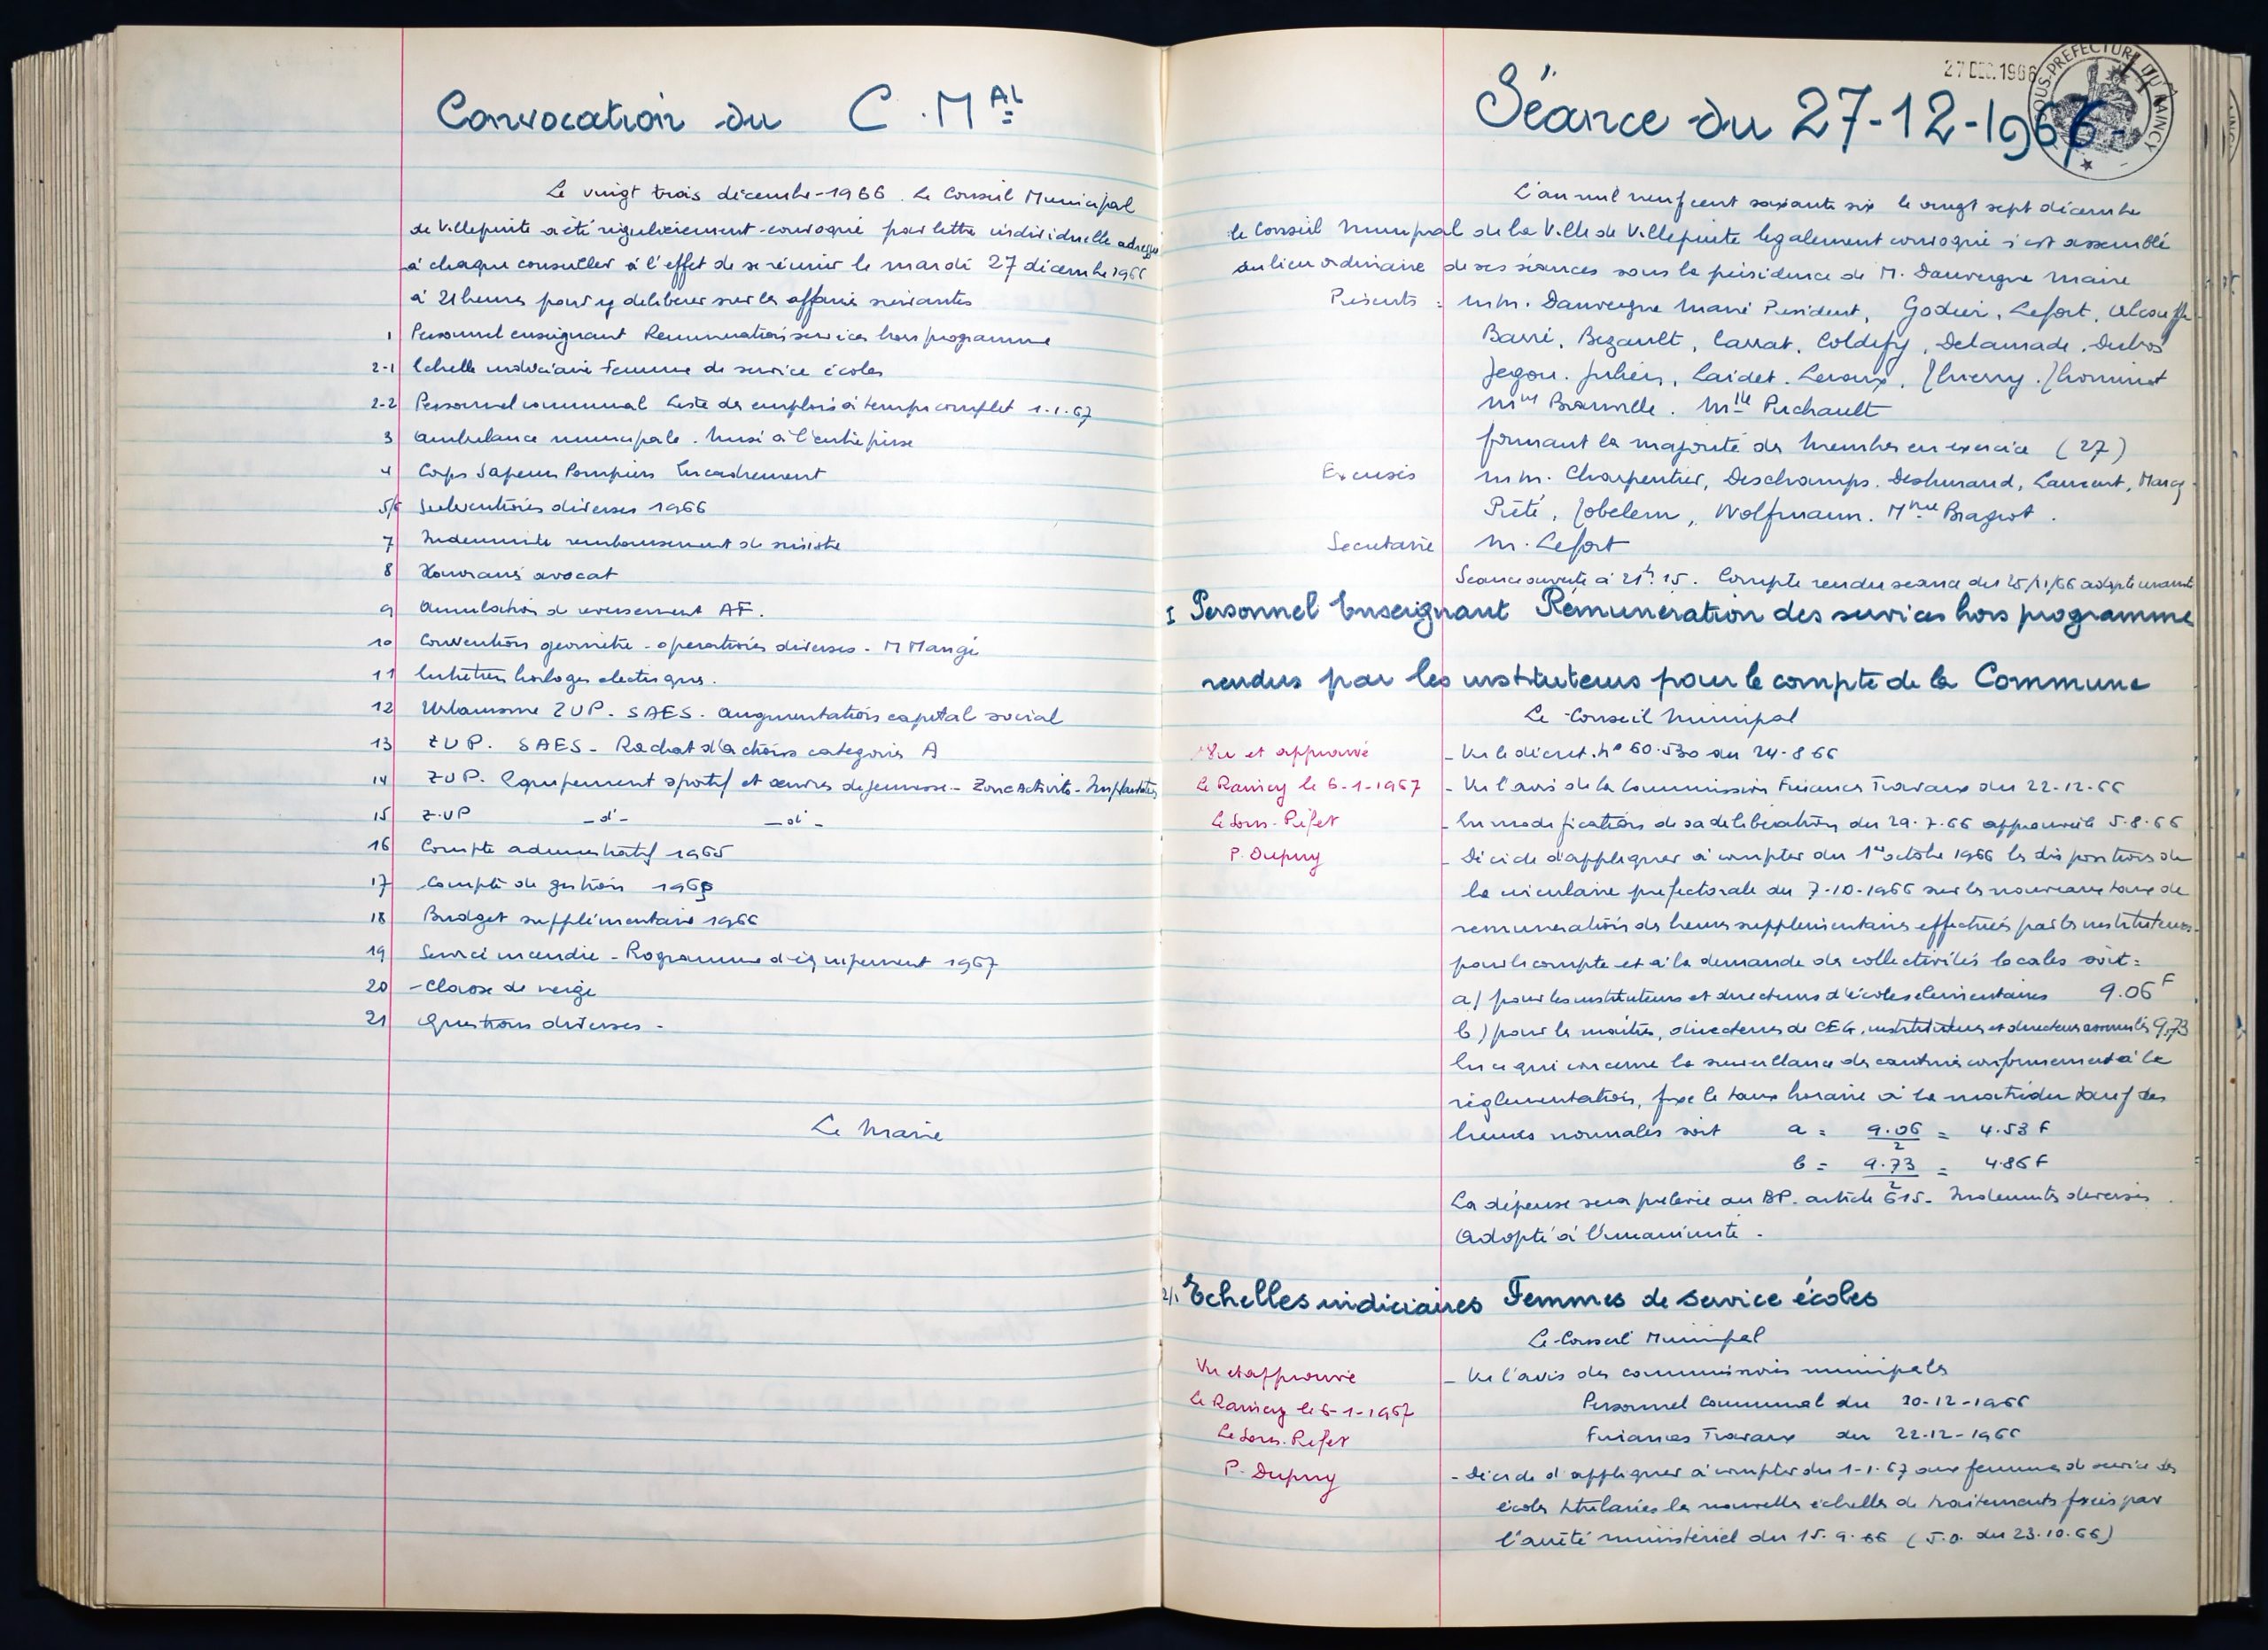 Convocation du C.M^AL
Le vingt trois décembre-1966. Le Conseil Municipal
de Villepinte a été régulièrement convoqué par lettre individuelle adressée
à chaque conseiller à l'effet de se réunir le mardi 27 décembre 1966
à 21 heures pour y délibérer sur les affaires suivantes
1 Personnel enseignant Rémunération services hors programme
2-1 Echelle indiciaire Femme de service écoles
2-2 Personnel communal Liste des emplois à temps complet 1.1.67
3 Ambulance municipale. Mise à l'entreprise
4 Corps Sapeurs Pompiers Encadrement
5/6 Subventions diverses 1966
7 Indemnité remboursement de sinistre
8 Honoraires avocat
9 Annulation de reversement AF.
10 Convention géomètre - opérations diverses - M Mangé
11 Entretien horloges électriques.
12 Urbanisme ZUP. SAES. Augmentation capital social
13 ZUP. SAES - Rachat d'actions catégories A
14 ZUP. Equipement sportif et œuvres de jeunesse - Zone Activités - Implantation
15 Z.UP -d°- -d°-
16 Compte administratif 1965
17 Compte de gestion 1965
18 Budget supplémentaire 1966
19 Service incendie - Programme d'équipement 1967
20 - Classe de neige
21 Questions diverses -
Le Maire
27 DEC. 1966
SOUS-PREFECTURE DU RAINCY
Séance du 27-12-1966-
L'an mil neuf cent soixante six le vingt sept décembre
le Conseil Municipal de la Ville de Villepinte légalement convoqué s'est assemblé
au lieu ordinaire de ses séances sous la présidence de M. Dauvergne Maire
Présents : MM. Dauvergne Maire Président, Godier, Lefort,
Barré, Bezault, Carrat, Coldefy, Delamade, Dubos
Jegou. Julien, Laidet. Leroux, Thierry. Thominet
Mme Branvelle. Mlle Puchault
formant la majorité des Membres en exercice (27)
Excusés MM. Charpentier, Deschamps. Deshurand, Laurent, Marcq
Piété, Tobelem, Wolfmann. Mme Bragiot.
Secrétaire M. Lefort
Séance ouverte à 21h.15. Compte rendu séance du 25/11/66 adopté unanimité
I Personnel Enseignant Rémunération des services hors programme
rendus par les instituteurs pour le compte de la Commune
Le Conseil Municipal
Vu et approuvé - Vu le décret. N° 60.530 du 24-8 66
Le Raincy le 6-1-1967 - Vu l'avis de la Commission Finances Travaux du 22-12-66
Le Sous-Préfet - En modification de sa délibération du 29.7.66 approuvée 5.8.66
P. Dupuy - Décide d'appliquer à compter du 1er octobre 1966 les dispositions de
la circulaire préfectorale du 7-10-1966 sur les nouveaux taux de
rémunération des heures supplémentaires effectuées par les instituteurs
pour le compte et à la demande des collectivités locales soit :
a) pour les instituteurs et directeurs d'écoles élémentaires 9.06 F
b) pour les maîtres, directeurs de CEG, instituteurs et directeurs assimilés 9,73
En ce qui concerne la surveillance des cantines conformément à la
réglementation, fixe le taux horaire à la moitié du tarif des
heures normales soit a = 9.06/2 = 4.53 F
b = 9.73/2 = 4.86 F
La dépense sera prélevée au BP. article 615 - Indemnités diverses.
Adopté à l'unanimité.
2/1 Echelles indiciaires Femmes de service écoles
Le Conseil Municipal
Vu et approuvé - Vu l'avis des commissions municipales
Le Raincy le 6-1-1967 Personnel Communal du 20-12-1966
Le Sous-Préfet Finances Travaux du 22-12-1966
P. Dupuy - Décide d'appliquer à compter du 1-1-67 aux femmes de service des
écoles titulaires les nouvelles échelles de traitements fixées par
l'arrêté ministériel du 15.9.66 (J.O. du 23.10.66)